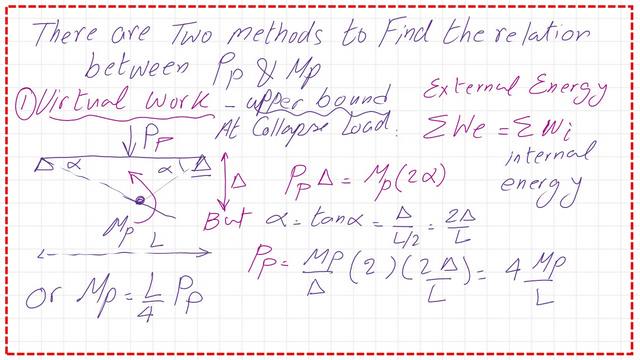 There are Two methods to Find the relation
between Pp & Mp
① Virtual work - upper bound
At Collapse Load.
External Energy
ΣWe = ΣWi
internal
energy
Pp
Δ α α Δ
Δ
Mp
L
Pp Δ = Mp(2α)
But α = tanα = Δ/(L/2) = 2Δ/L
Pp = Mp/Δ (2)(2Δ/L) = 4 Mp/L
Or Mp = L/4 Pp